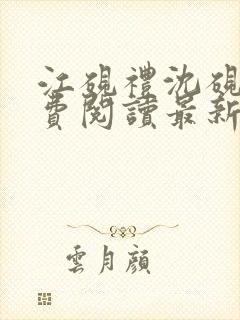 江硯禮沈硯
費閱讀最新
雲月顏